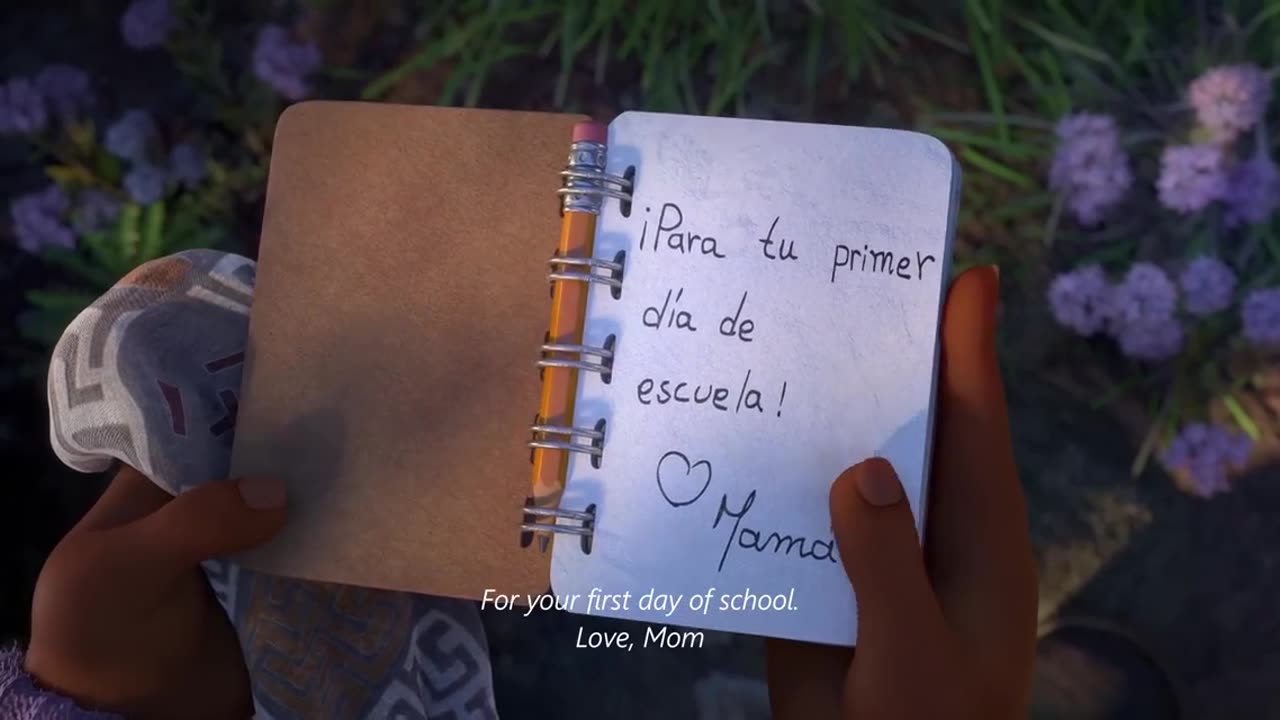 ¡Para tu primer
día de
escuela!
Mamá
For your first day of school.
Love, Mom